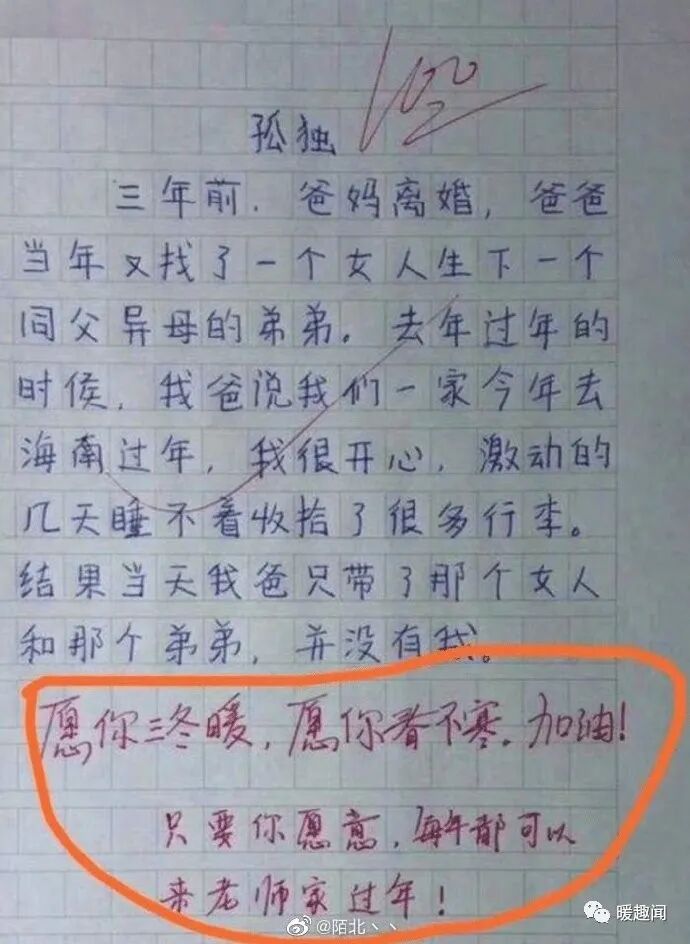 100
孤独
三年前.爸妈离婚，爸爸
当年又找了一个女人生下一个
同父异母的弟弟。去年过年的
时侯，我爸说我们一家今年去
海南过年，我很开心，激动的
几天睡不着收拾了很多行李。
结果当天我爸只带了那个女人
和那个弟弟，并没有我。
愿你三冬暖，愿你春不寒。加油！
只要你愿意，每年都可以
来老师家过年！
@陌北丶丶
暖趣闻